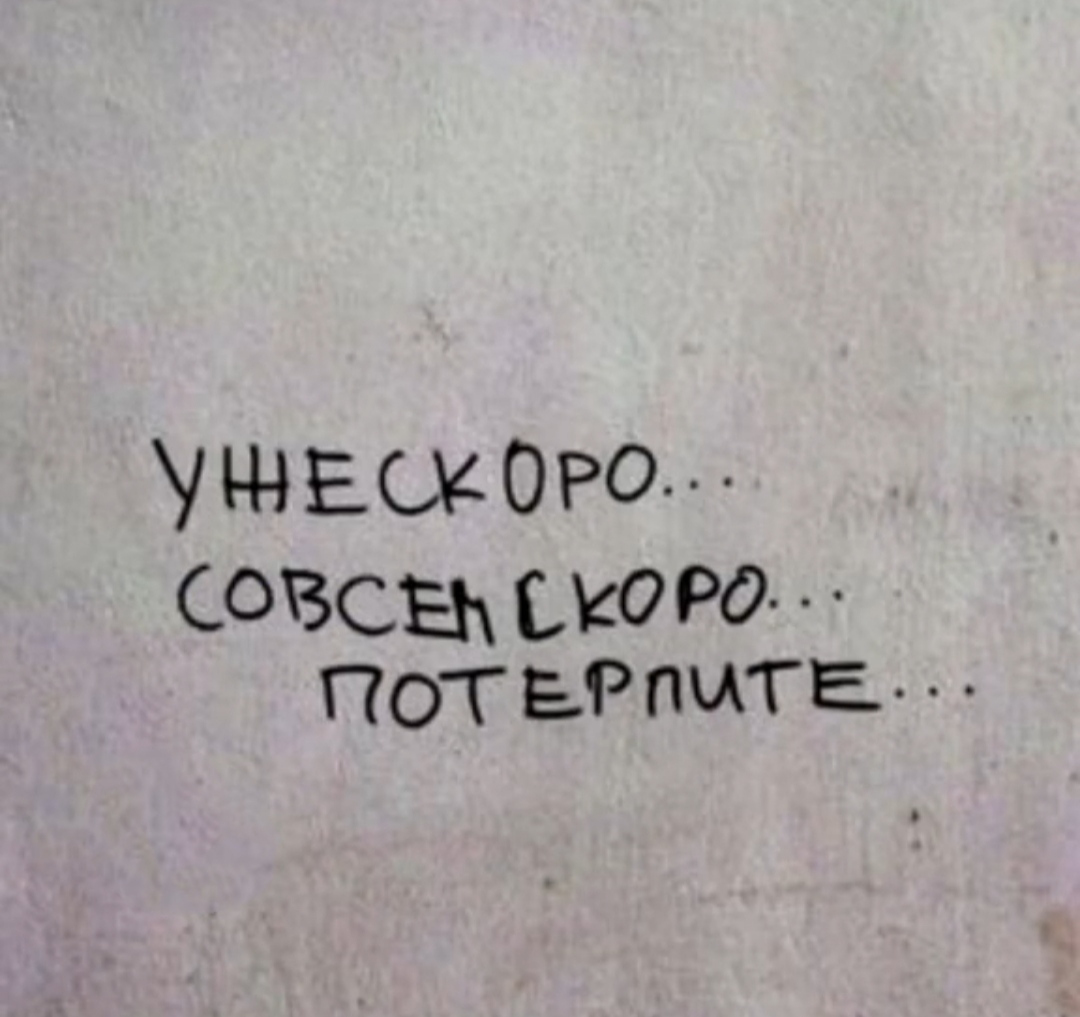 УЖЕ СКОРО....
СОВСЕМ СКОРО...
ПОТЕРПИТЕ...